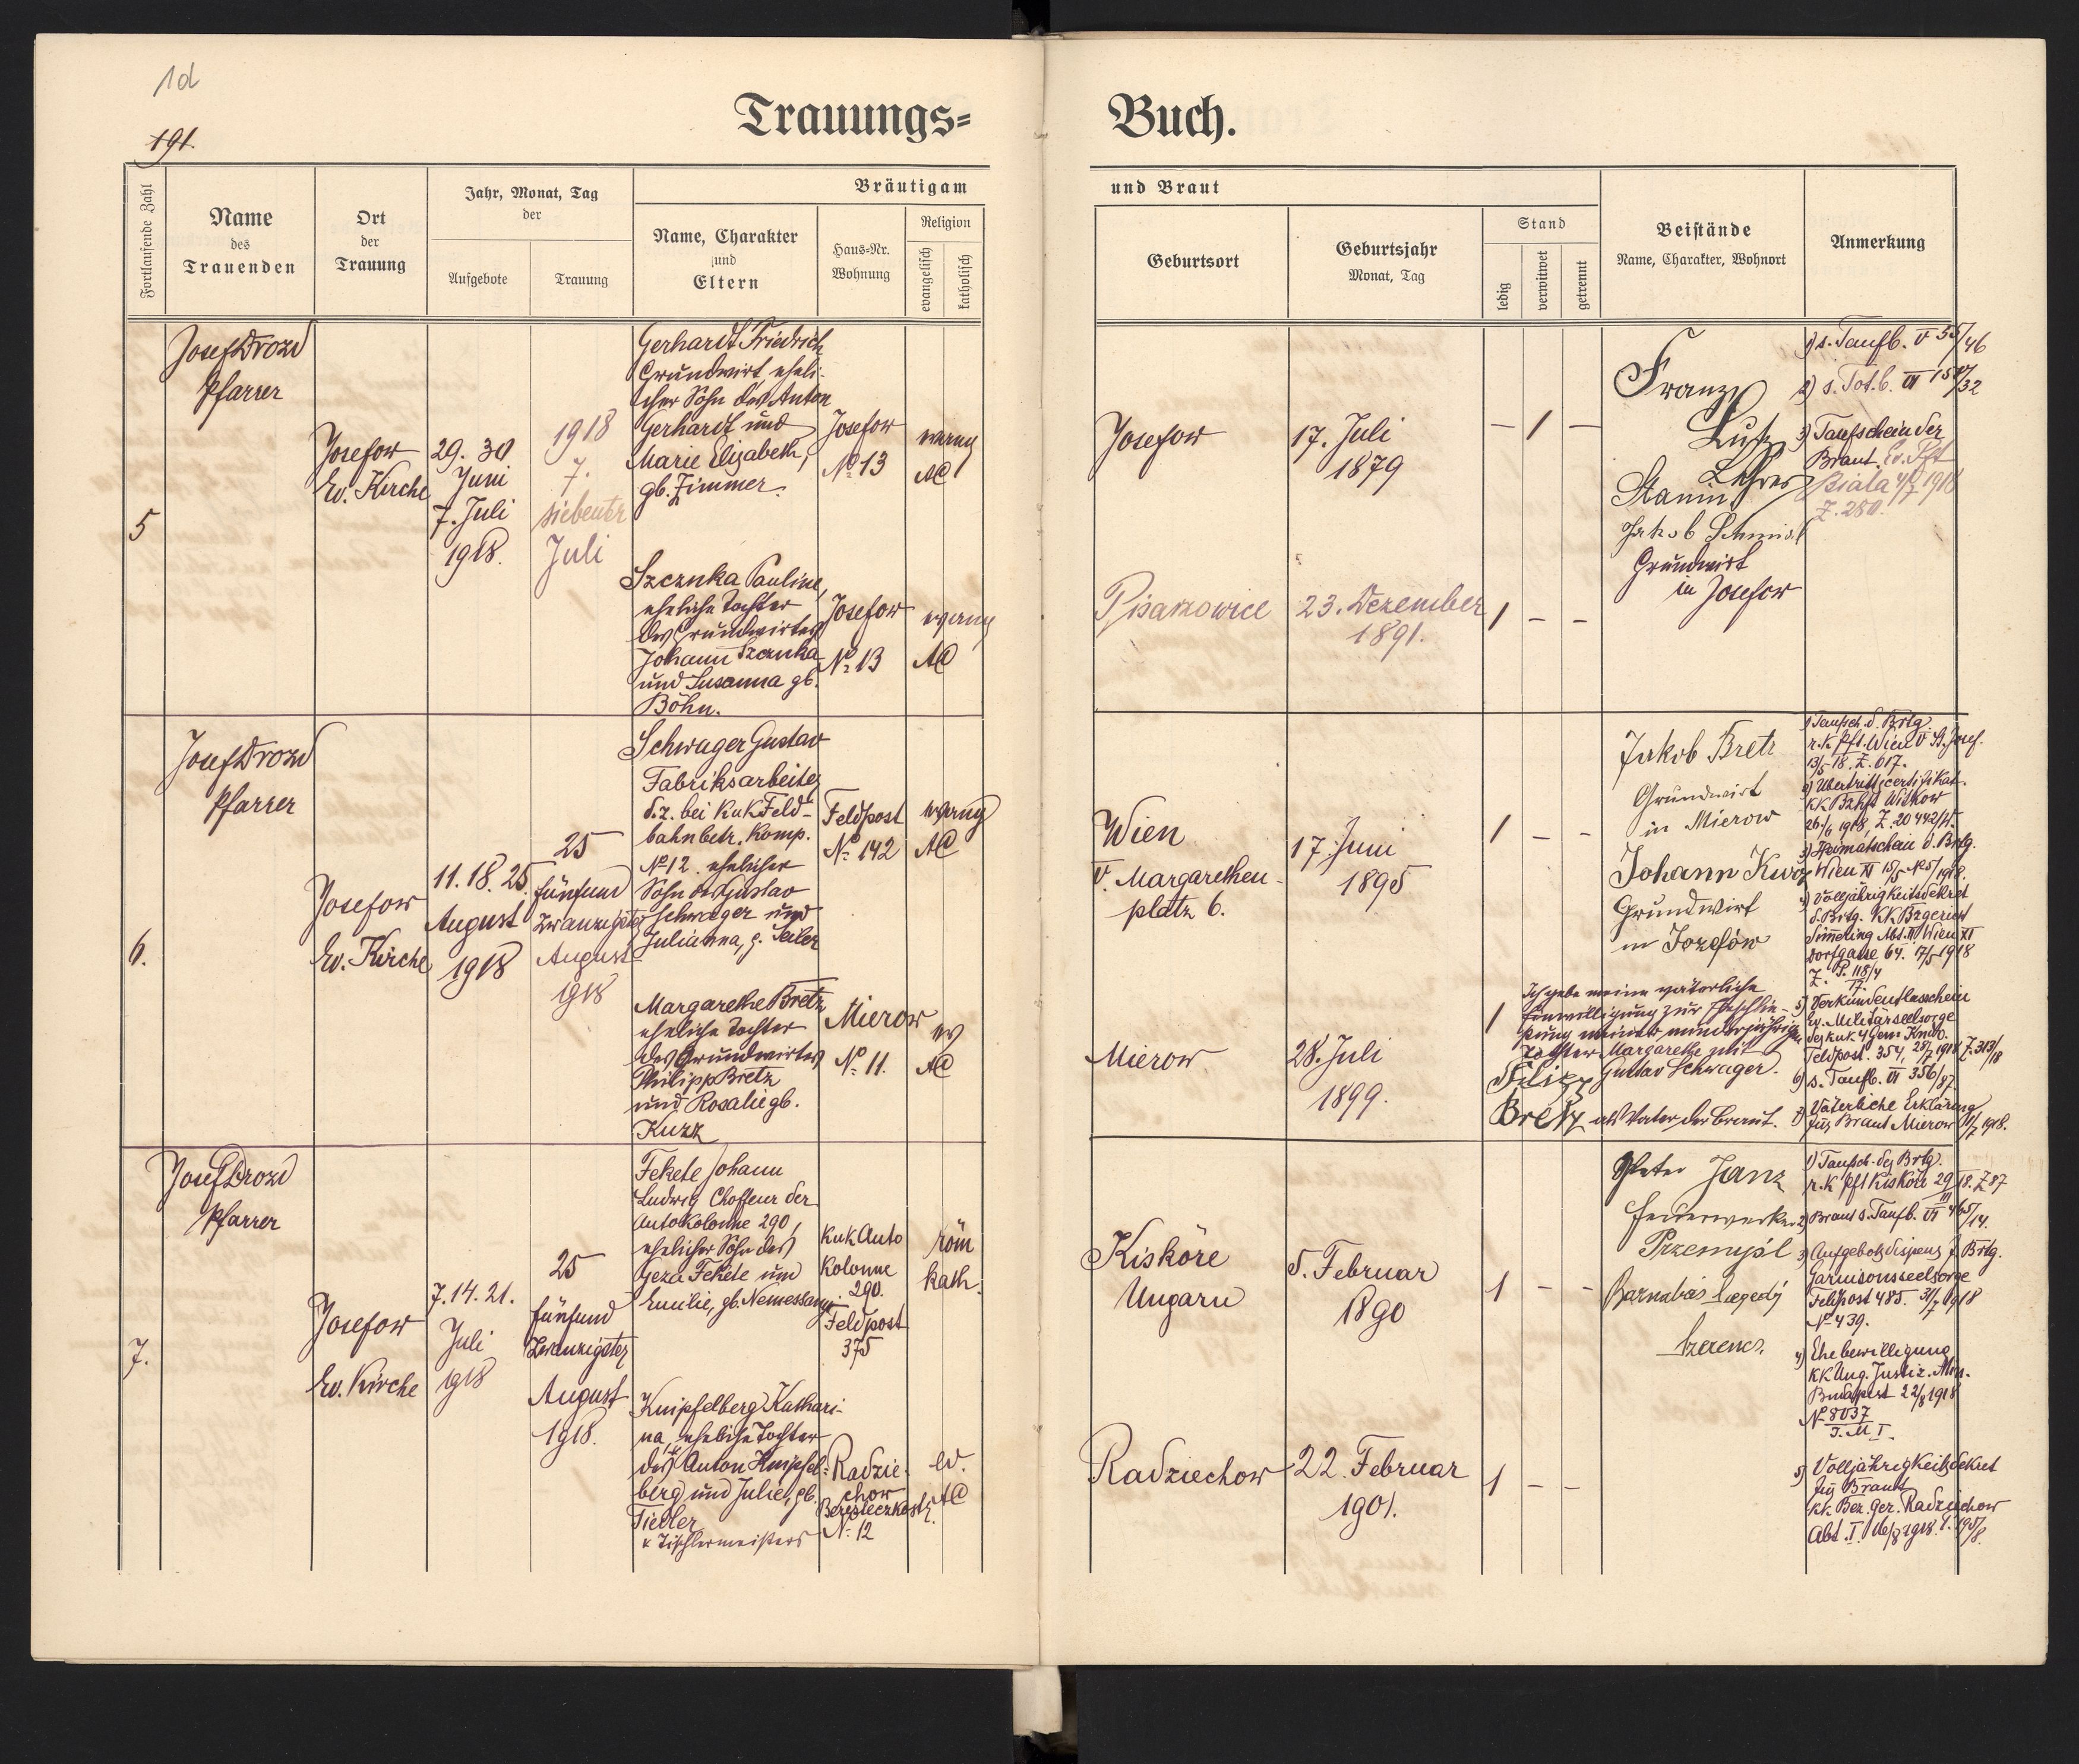 1d
191.
Trauungs=
Buch.
Fortlaufende Zahl
Name
des
Trauenden
Ort
der
Trauung
Jahr, Monat, Tag
der
Aufgebote
Trauung
Bräutigam
Name, Charakter
und
Eltern
Haus=Nr.
Wohnung
Religion
evangelisch
katholisch
und Braut
Geburtsort
Geburtsjahr
Monat, Tag
Stand
ledig
verwitwet
getrennt
Beistände
Name, Charakter, Wohnort
Anmerkung
5
Josef Drozd
Pfarrer
Josefow
Ev. Kirche
29. 30
Juni
7. Juli
1918.
1918
7.
siebenter
Juli
Gerhardt Friedrich
Grundwirt, eheli-
cher Sohn des Anton
Gerhardt und
Marie Elizabeth,
gb. Zimmer.
Josefow
No 13
evang
AC
Josefow
17. Juli
1879
— 1 —
Szczuka Pauline,
eheliche Tochter
des Grundwirtes
Johann Szczuka
und Susanna gb.
Böhn.
Josefow
No 13
evang
AC
Pisarzowice
23. Dezember
1891.
1 - -
Franz
Lutz
Lehrer
Stanin
Jakob Schmidt
Grundwirt
in Josefow
1) s. Taufb. V 55/46
2) s. Totb. VI 157/32
3) Taufschein der
Braut. Ev. Pft
Biala 4/7 1918
Z. 280.
6.
Josef Drozd
Pfarrer
Josefow
Ev. Kirche
11. 18. 25.
August
1918
25
fünfund
zwanzigster
August
1918
Schwager Gustav
Fabriksarbeiter
d.z. bei KukFeld-
bahnbetr. Komp.
No 12. ehelicher
Sohn des Gustav
Schwager und
Julianna, g. Seiler
Feldpost
No 142
evang
AC
Wien
V. Margarethen-
platz 6.
17. Juni
1895
1 - -
Margarethe Bretz
eheliche Tochter
des Grundwirtes
Philipp Bretz
und Rosalie gb.
Kurz
Mierow
No 11.
ev
AC
Mierow
28. Juli
1899.
1
Ich gebe meine väterliche
Einwilligung zur Eheschlie-
ßung meiner minderjährigen
Tochter Margarethe mit
Gustav Schwager.
Filipp
Bretz als Vater der Braut.
Jakob Bretz
Grundwirt
in Mierow
Johann Kurz
Grundwirt
in Jozefów
1) Taufsch. d. Brtg.
r.k. Pft. Wien V St. Josef.
13/5 18. Z. 617.
2) Übertrittscertifikat.
KK Bzhft Witkow
26/6 1918, Z. 20442/W.
3) Heimatschein d. Brtg.
4) Volljährigkeitsdekret
d. Brtg. KK Bzgericht
Simmering Abt. II Wien XI
Dorfgasse 64. 17/5 1918
5) Verkündentlasschein
Ev. Militärseelsorge
Feldpost. 354, 28/7 1918 Z. 313/18
6) s. Taufb. VI 356/87
7) Väterliche Erklärung
für Braut Mierow 11/7 1918.
7.
Josef Drozd
Pfarrer
Josefow
Ev. Kirche
7. 14. 21.
Juli
1918
25
fünfund
Zwanzigster
August
1918.
Fekete Johann
Ludwig Choffeur der
Autokolonne 290,
ehelicher Sohn des
Geza Fekete und
Emilie, gb. Nemessanyi.
KukAuto
Kolonne
290.
Feldpost
375
röm
kath.
Kisköre
Ungarn
5. Februar
1890
1 - -
Knipfelberg Kathari-
na, eheliche Tochter
des x Anton Knipfel-
berg und Julie, gb.
Tiedler
x Tischlermeisters
Radzie-
chow
No 12
ev.
AC
Radziechow
22. Februar
1901.
1 - -
Peter Janz
Feuerwerker
Przemyśl
Barnabás Szegedy
Szerencs.
1) Taufsch. des Brtg.
r.k Pft Kisköre 29/III 18. Z 87
2) Braut s. Taufb. VI 465/14.
3) Aufgebotsdispens f. Brtg.
Garnisonsseelsorge
Feldpost 485. 31/7 1918
No 439.
4) Ehebewilligung
KK Ung. Justiz. Min.
Budapest 22/8 1918
No 8037
J. M I.
5) Volljährigkeitsdekret
für Braut
kk. Bez. Ger. Radziechow